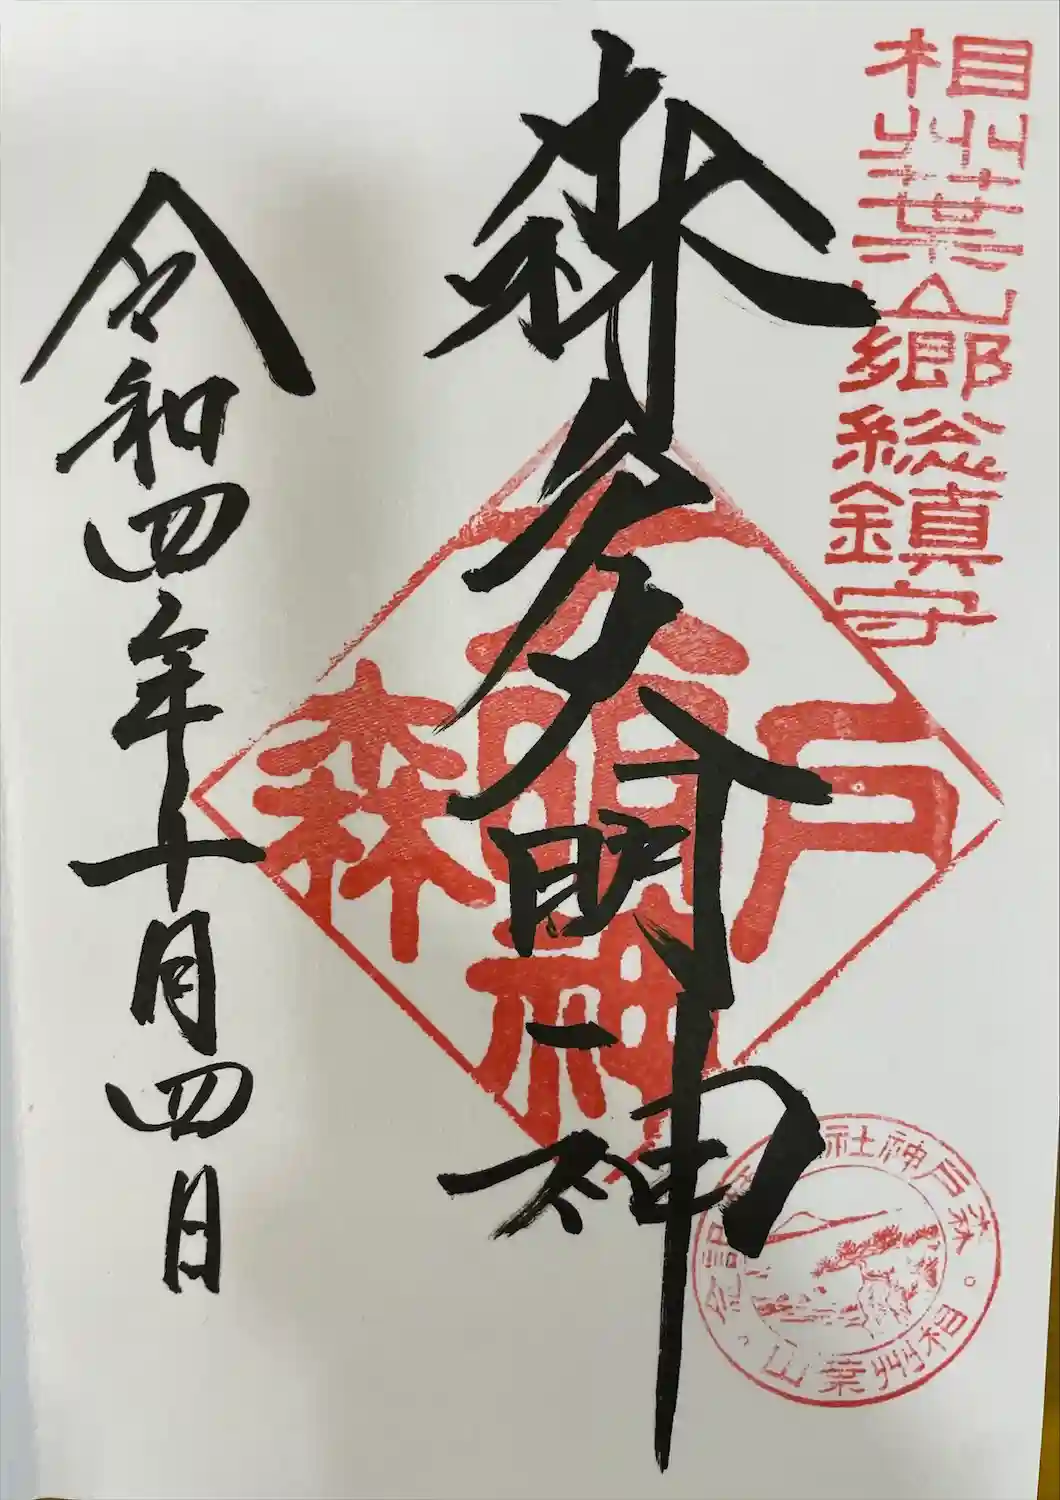 相州葉山郷総鎮守
森戸大明神
令和四年十月四日
森戸大明神
森戸神社 記念
相州葉山